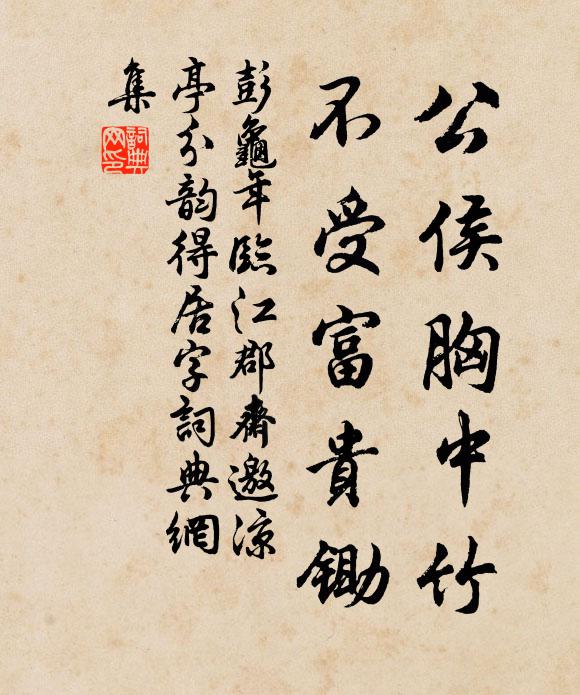 公侯胸中竹
不受富貴鋤
彭龜年臨江郡齋邀涼
亭分韵得居字詞典網
集
詞典网印